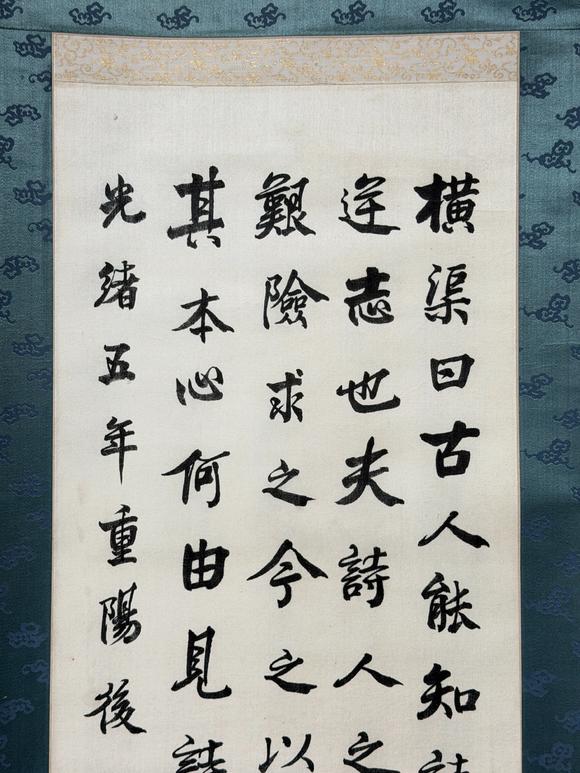 橫渠曰古人能知詩
逆志也夫詩人之
艱險求之今之以
其本心何由見詩
光緒五年重陽後